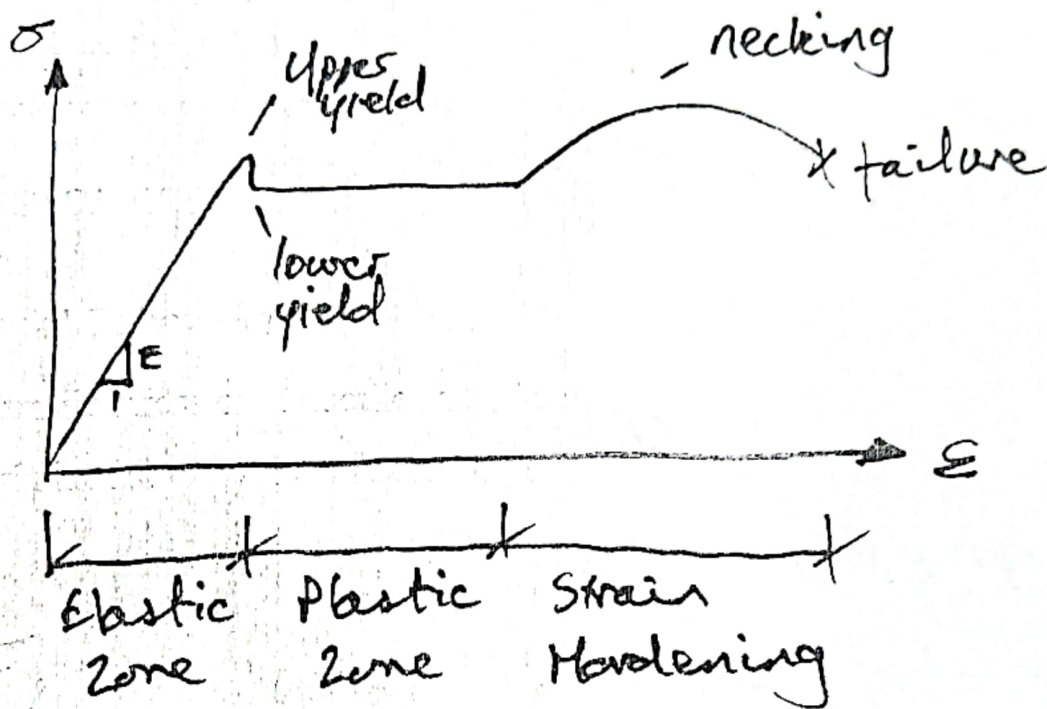 σ
necking
Upper
yield
failure
lower
yield
E
1
ε
Elastic
Zone
Plastic
Zone
Strain
Hardening